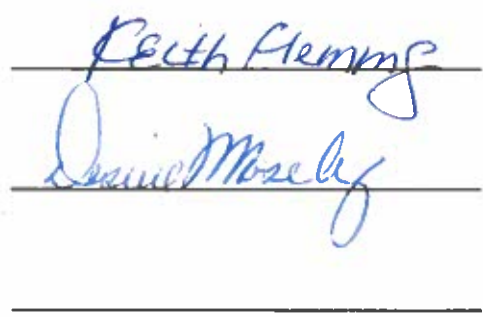 Keith Flemmg
Desiree Mosely